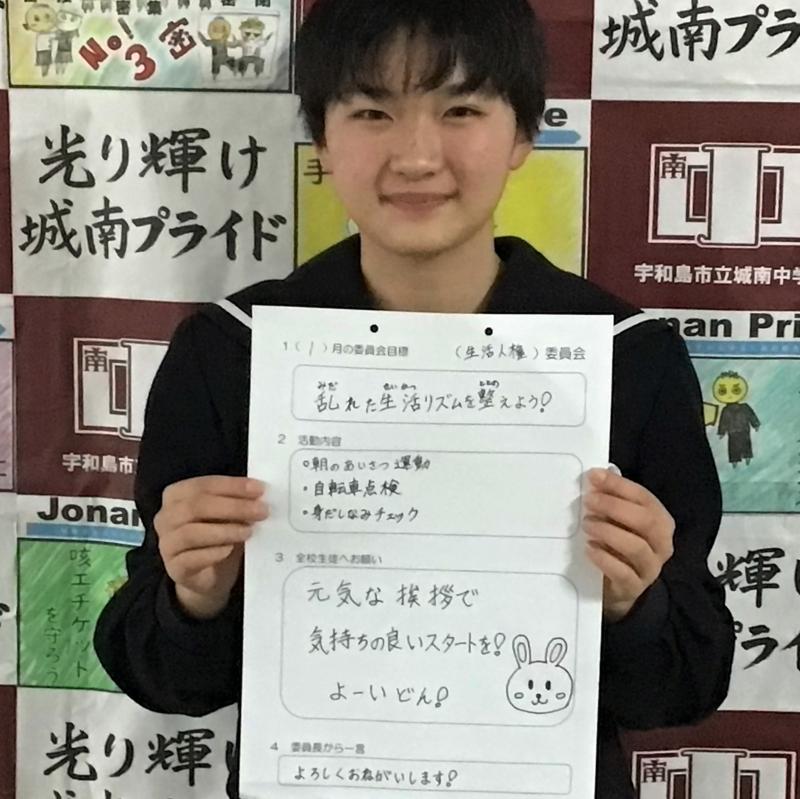 No!
3密
城南プラ
光り輝け
城南プライド
手
e
南
宇和島市立城南中学
nan Pri
南
宇和島市
Jonan
咳エチケット
を守ろう
光り輝け
南
1 ( 1 ) 月の委員会目標 (生活人権) 委員会
みだ せいかつ ととの
乱れた生活リズムを整えよう!
2 活動内容
○朝のあいさつ運動
・自転車点検
・身だしなみチェック
3 全校生徒へお願い
元気な挨拶で
気持ちの良いスタートを!
よーいどん!
4 委員長から一言
よろしくおねがいします!